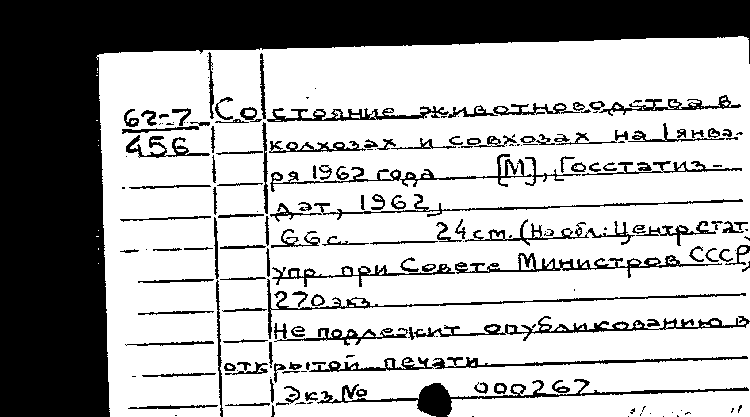 62-7 Состояние животноводства в
456 колхозах и совхозах на 1 янва-
ря 1962 года [М], Госстатиз-
дат, 1962,
66 с. 24 см. (На обл.: Центр. стат.
упр. при Совете Министров СССР,
270 экз.
Не подлежит опубликованию в
открытой печати.
Экз. № 000267.